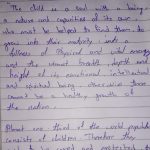 "The child is a soul with a being,
a nature and capacities of its own,
who must be helped to find them, to
grow into their maturity, into
fullness of physical and vital energy
and the utmost breadth, depth and
height of its emotional, intellectual
and spiritual being; otherwise there
cannot be a healthy growth of
the nation.
Almost one third of the world population
consists of children. Therefore they
to be cared and protected